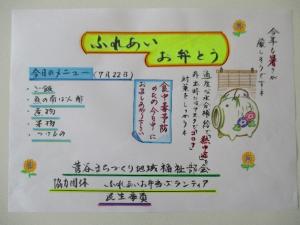 ふれあい
お弁とう
今年も暑さが
厳しそうです
今日のメニュー(7月22日)
・ご飯
・煮物
・果物
・つけもの
食中毒予防
のため今日中に
お召しあがり下さい。
適度な水分補給で熱中症
対策をしっかりと
菅谷まちづくり地域福祉部会
協力団体 ふれあいお弁当ボランティア
民生委員